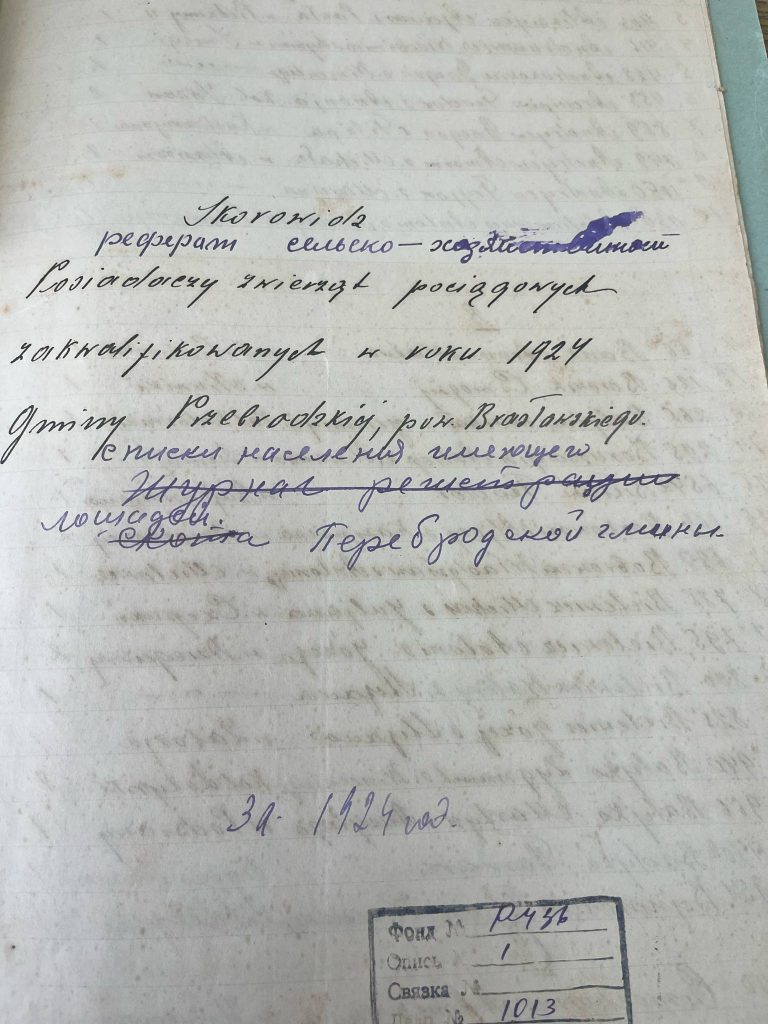 Skorowidz
реферат сельско-хозяйственной
Posiadaczy zwierząt pociągowych
zakwalifikowanych w roku 1924
Gminy Przebrodzkiej, pow. Brasławskiego.
списки населения имеющего
Журнал регистрации
лошадей.
скота Перебродской гмины.
За 1924 год.
Фонд № Р436
Опись 1
Связка №
№ 1013